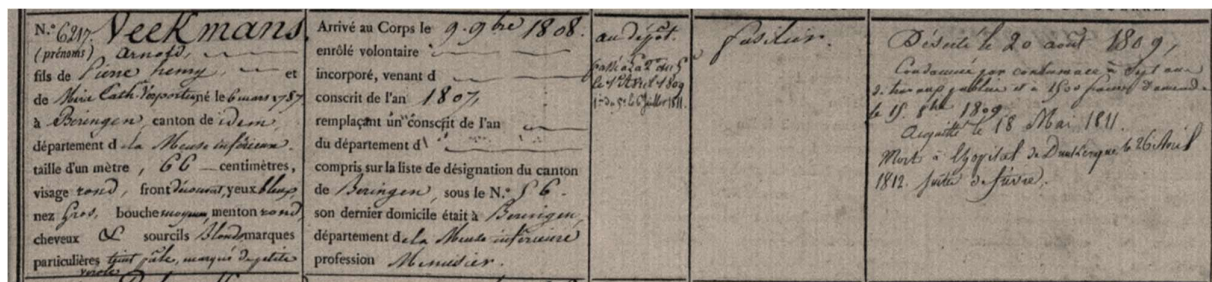 N.º 6217. Veekmans
(prénoms) arnold,
fils de Pierre henry, et
de Marie Cath. né le 6 mars 1787
à Beringen, canton de idem,
département de la Meuse inférieure
taille d'un mètre, 66 centimètres,
visage rond, front découvert, yeux bleus,
nez Gros, bouche moyenne, menton rond,
cheveux & sourcils blonds, marques
particulières teint pâle, marqué de petite
verole
Arrivé au Corps le 9. 9bre 1808.
enrôlé volontaire
incorporé, venant d
conscrit de l'an 1807,
remplaçant un conscrit de l'an
du département d
compris sur la liste de désignation du canton
de Beringen, sous le N.º 56.
son dernier domicile était à Beringen,
département de la Meuse inférieure
profession Menusier.
au dépôt.
passé à la 2e du 5
le 1er Avril 1809
1re du 5e le 6 juillet 1811.
fusilier.
Déserté le 20 août 1809,
Condamné par contumace à Sept ans
d. travaux publics et à 1500 francs d'amende
le 15. 8bre 1809
Acquitté le 18 Mai 1811.
Mort à l'hopital de Dunkerque le 26 Avril
1812. suite de fièvre.